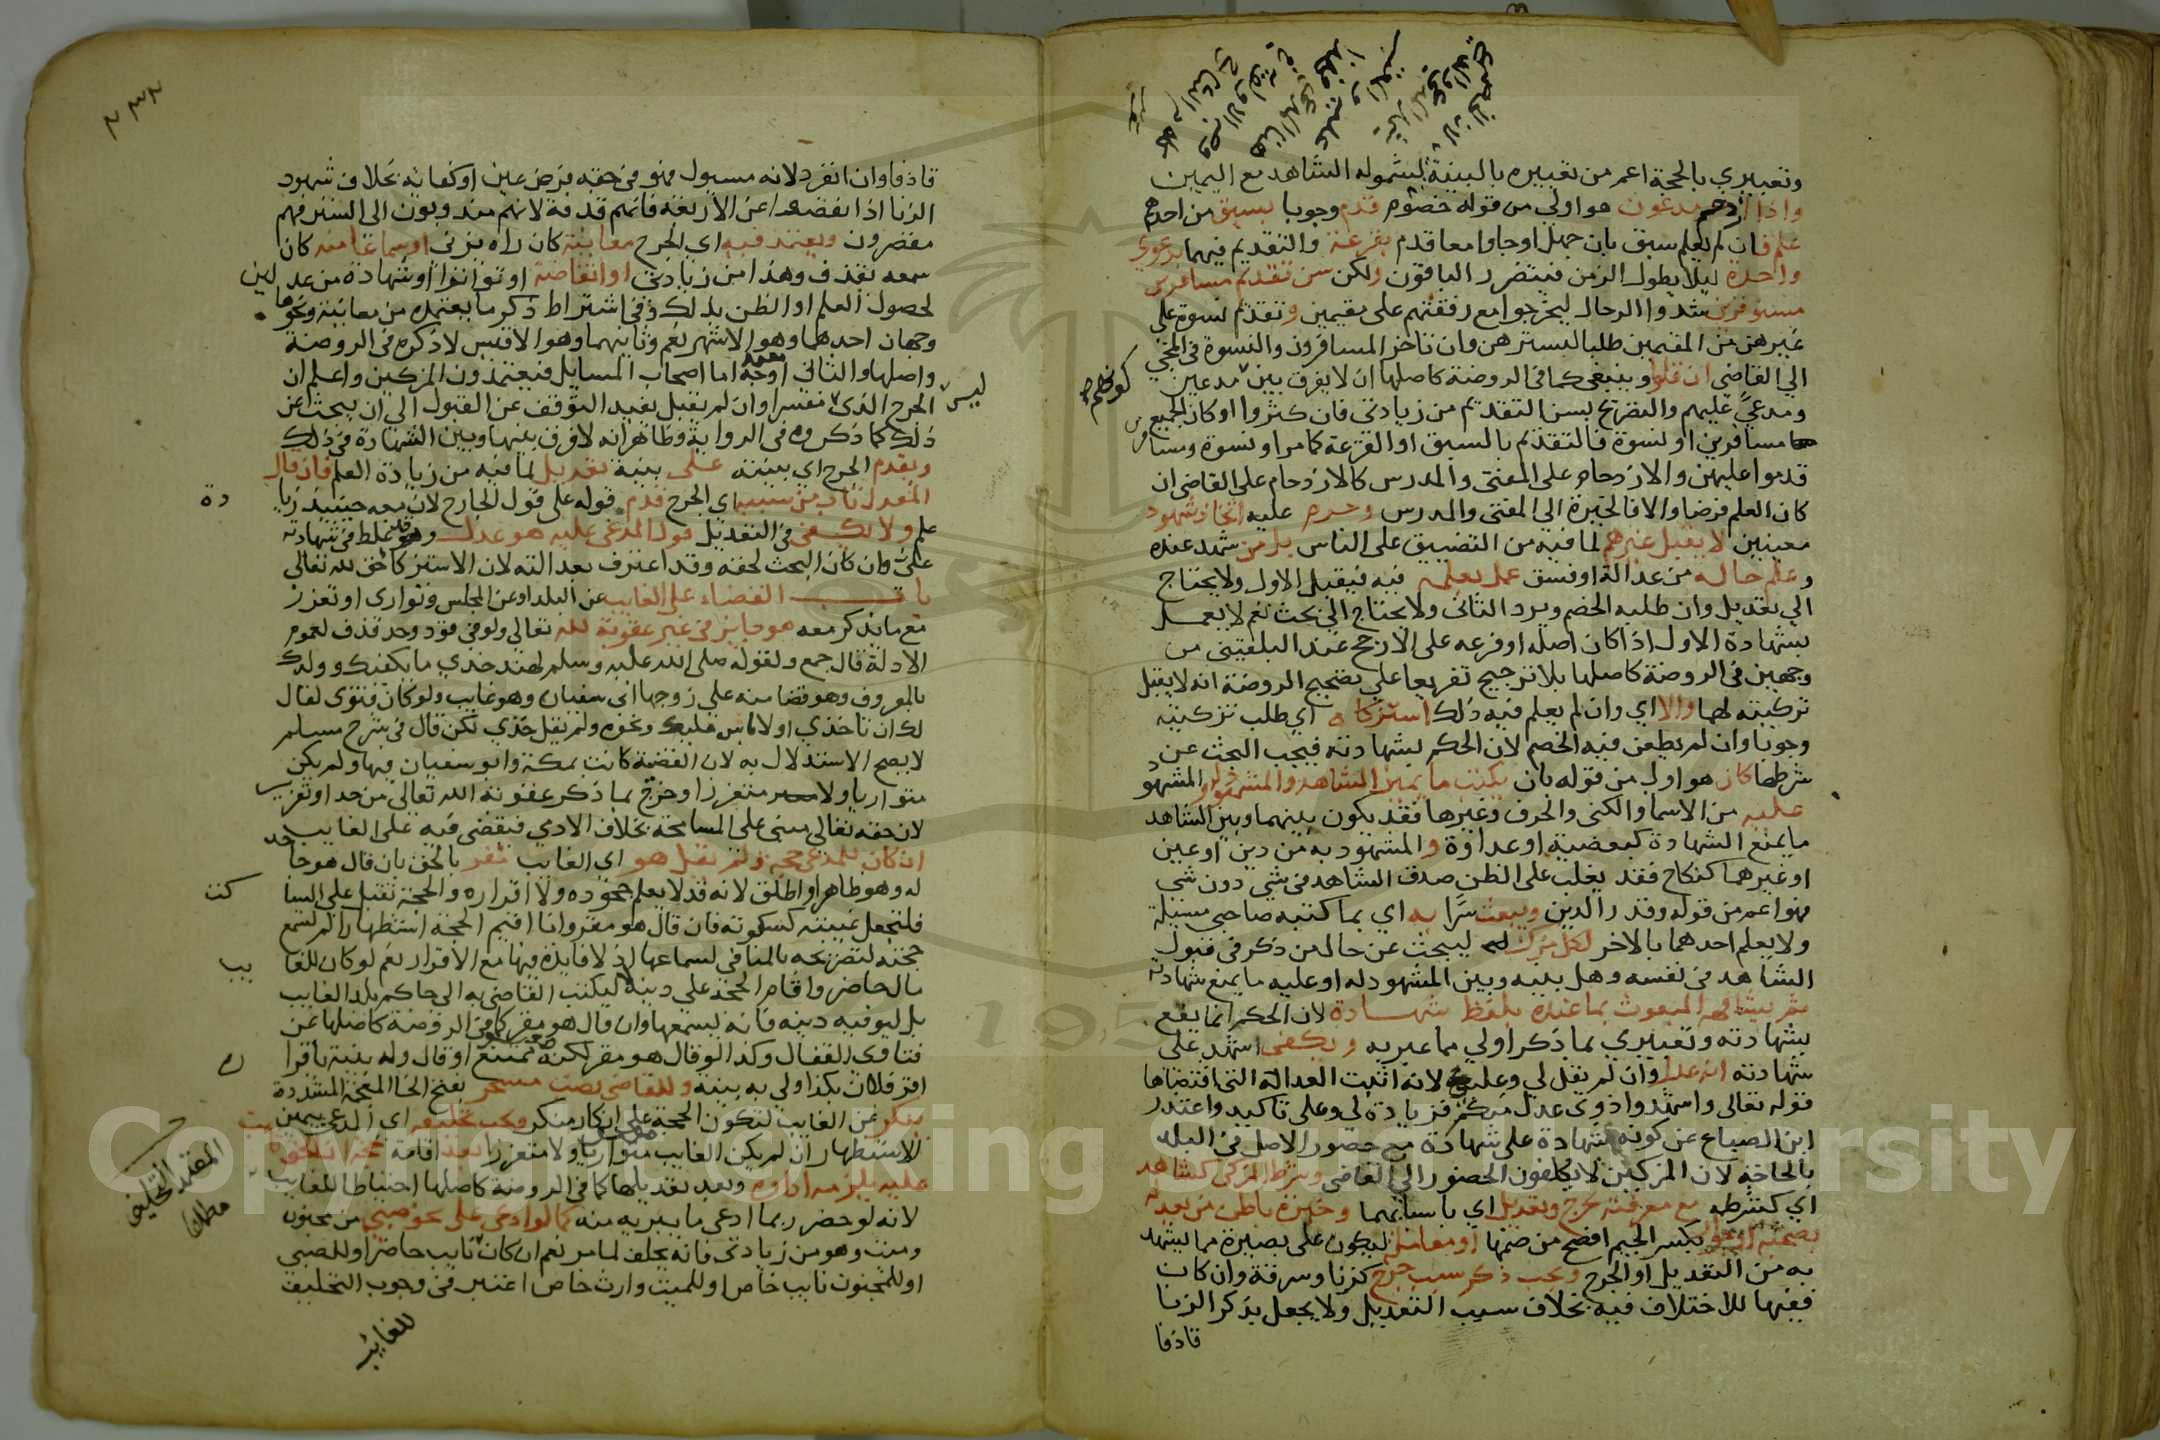 وتعبيري بالحجة اعم من تعبيره بالبينة لشموله الشاهد مع اليمين
واذا ازدحم مدعون هو اولى من قوله خصوم قدم وجوبا بسبق من احدهم
علم فان لم يعلم سبق بان جهل اوجاوا معا قدم بقرعة والتقديم فيهما بدعوى
واحدة ليلا يطول الزمن فيتضرر الباقون ولكن سن تقديم مسافرين
مستوفزين شدوا الرحال ليخرجوا مع رفقتهم على مقيمين وتقديم نسوة على
غيرهن من المقيمين طلبا لسترهن وان تاخر المسافرون والنسوة في المجي
الى القاضي ان قلوا وينبغي كما في الروضة كاصلها ان لا يفرق بين مدعين
ومدعى عليهم والتصريح بسن التقديم من زيادتي فان كثروا او كان الجميع
مسافرين او نسوة فالتقديم بالسبق او القرعة كما مر او نسوة ومسافرين
قدموا عليهن والازدحام على المفتي والمدرس كالازدحام على القاضي ان
كان العلم فرضا والا فالخيرة الى المفتي والمدرس وحرم عليه اتخاذ شهود
معينين لا يقبل غيرهم لما فيه من التضييق على الناس بل من شهد عنده
وعلم حاله من عدالة او فسق عمل بعلمه فيه فيقبل الاول ولا يحتاج
الى تعديل وان طلبه الخصم ويرد الثاني ولا يحتاج الى بحث نعم لا يعمل
بشهادة الاول اذا كان اصله او فرعه على الارجح عند البلقيني من
وجهين في الروضة كاصلها بلا ترجيح تفريعا على تصحيح الروضة انه لا يقبل
تزكيته لهما والا اي وان لم يعلم فيه ذلك استزكاه اي طلب تزكيته
وجوبا وان لم يطعن فيه الخصم لان الحكم بشهادته فيجب البحث عن
شرطها كان هو اولى من قوله بان يكتب ما يميز الشاهد والمشهود له والمشهود
عليه من الاسما والكنى والحرف وغيرها فقد يكون بينهما وبين الشاهد
ما يمنع الشهادة كبعضية او عداوة والمشهود به من دين او عين
او غيرهما كنكاح فقد يغلب على الظن صدق الشاهد في شي دون شي
فهو اعم من قوله وقدر الدين ويبعث سرا به اي بما كتبه صاحبي مسيلة
ولا يعلم احدهما بالاخر لكل مزك ليبحث عن حال من ذكر في قبول
الشاهد في نفسه وهل بينه وبين المشهود له او عليه ما يمنع شهادته
ثم يشافهه المبعوث بما عنده بلفظ شهادة لان الحكم انما يقع
بشهادته وتعبيري بما ذكر اولى مما عبر به ويكفي اشهد على
شهادته انه عدل وان لم يقل لي وعلي لانه اثبت العدالة التي اقتضاها
قوله تعالى واشهدوا ذوى عدل منكم فزيادة لي وعلي تاكيد واعتذر
ابن الصباغ عن كونه شهادة على شهادة مع حضور الاصل في البلد
بالحاجة لان المزكين لا يكلفون الحضور الى القاضي وشرط المزكي كشاهد
اي كشرطه مع معرفته بجرح وتعديل اي باسبابهما وخبرة باطن من يعدله
بصحبة او جوار بكسر الجيم افصح من ضمها او معاملة ليكون على بصيرة مما يشهد
به من التعديل او الجرح ويجب ذكر سبب جرح كزنا وسرقة وان كان
فقيها للاختلاف فيه بخلاف سبب التعديل ولا يجعل بذكر الزنا
قاذفا
قاذفا وان انفرد لانه مسيول فهو في حقه فرض عين او كفاية بخلاف شهود
الزنا اذا نقصوا عن الاربعة فانهم قذفة لانهم مندوبون الى الستر فهم
مقصرون ويعتمد فيه اي الجرح معاينة كان راه يزني او سماعا منه كان
سمعه يقذف وهذا من زيادتي او استفاضة او تواترا او شهادة من عدلين
لحصول العلم او الظن بذلك وفي اشتراط ذكر ما يعتمده من معاينة ونحوها
وجهان احدهما وهو الاشهر نعم وثانيهما وهو الاقيس لا ذكره في الروضة
واصلها والثاني اوجه اما اصحاب المسايل فيعتمدون المزكين واعلم ان
الجرح الذي ليس مفسرا وان لم يقبل يفيد التوقف عن القبول الى ان يبحث عن
ذلك كما ذكروه في الرواية وظاهر انه لا فرق بينها وبين الشهادة في ذلك
ويقدم الجرح اي بينته على بينة تعديل لما فيه من زيادة العلم فان قال
المعدل تاب من سببه اي الجرح قدم قوله على قول الجارح لان معه حينيذ زيادة
علم ولا يكفي في التعديل قول المدعى عليه هو عدل وقد غلط في شهادته
علي وان كان البحث لحقه وقد اعترف بعدالته لان الاستزكا حق لله تعالى
باب القضاء على الغايب عن البلد او عن المجلس وتوارى او تعزز
مع ما يذكر معه هو جايز في غير عقوبة لله تعالى ولو في قود وحد قذف لعموم
الادلة قال جمع ولقوله صلى الله عليه وسلم لهند خذي ما يكفيك وولدك
بالمعروف وهو قضا منه على زوجها ابي سفيان وهو غايب ولو كان فتوى لقال
لك ان تاخذي او لا باس عليك ونحوه ولم يقل خذي لكن قال في شرح مسلم
لا يصح الاستدلال به لان القضية كانت بمكة وابو سفيان فيها ولم يكن
متواريا ولا متعززا وخرج بما ذكر عقوبة الله تعالى من حد او تعزير
لان حقه تعالى مبني على المسامحة بخلاف الادمي فيقضى فيه على الغايب
ان كان للمدعي حجة ولم يقل هو اي الغايب مقر بالحق بان قال هو جاحد
له وهو ظاهر او اطلق لانه قد لا يعلم جحوده ولا اقراره والحجة تقبل على الساكت
فلتجعل غيبته كسكوته فان قال هو مقر وانا اقيم الحجة استظهارا لم تسمع
حجته لتصريحه بالمنافي لسماعها اذ لا فايدة فيها مع الاقرار نعم لو كان للغايب
مال حاضر واقام الحجة على دينه لا ليكتب القاضي به الى حاكم بلد الغايب
بل ليوفيه دينه فانه يسمعها وان قال هو مقر كما في الروضة كاصلها عن
فتاوى القفال وكذا لو قال هو مقر لكنه ممتنع او قال وله بينة باقراره
اقر فلان بكذا ولي به بينة وللقاضي نصب مسخر بفتح الخا المعجمة المشددة
ينكر عن الغايب لتكون الحجة على انكار منكر ويجب تحليفه اي المدعي يمين
الاستظهار ان لم يكن الغايب متواريا ولا متعززا بعد اقامة حجة ان الحق ثابت
عليه يلزمه اداوه وبعد تعديلها كما في الروضة كاصلها احتياطا للغايب
لانه لو حضر ربما ادعى ما يبريه منه كما لو ادعى على نحو صبي من مجنون
وميت وهو من زيادتي فانه يحلف لما مر نعم ان كان نايب حاضر او للصبي
او للمجنون نايب خاص او للميت وارث خاص اعتبر في وجوب التحليف
للغايب
Copyright © King Saud University
195